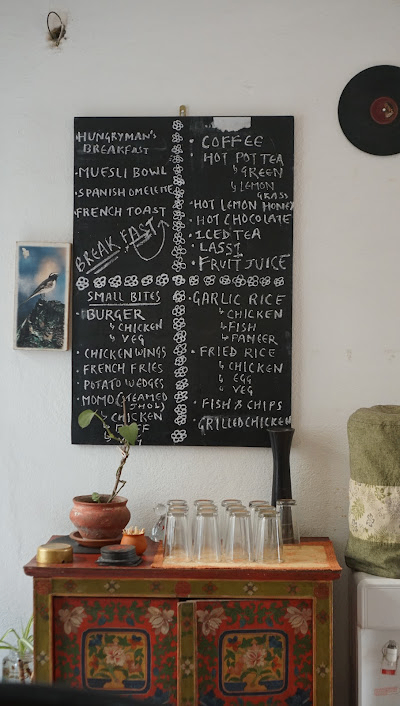 HUNGRYMAN's
BREAKFAST
·MUESLI BOWL
·SPANISH OMELETTE
·FRENCH TOAST
BREAK FAST
· COFFEE
· HOT POT TEA
↳ GREEN
↳ LEMON
GRASS
·HOT LEMON HONEY
· HOT CHOCOLATE
· ICED TEA
· LASSI
· FRUIT JUICE
SMALL BITES
· BURGER
↳ CHICKEN
↳ VEG
· CHICKEN WINGS
· FRENCH FRIES
· POTATO WEDGES
· MOMO (STEAMED
JHOL)
↳ CHICKEN
· GARLIC RICE
↳ CHICKEN
↳ FISH
↳ PANEER
· FRIED RICE
↳ CHICKEN
↳ EGG
↳ VEG
· FISH & CHIPS
· GRILLED CHICKEN